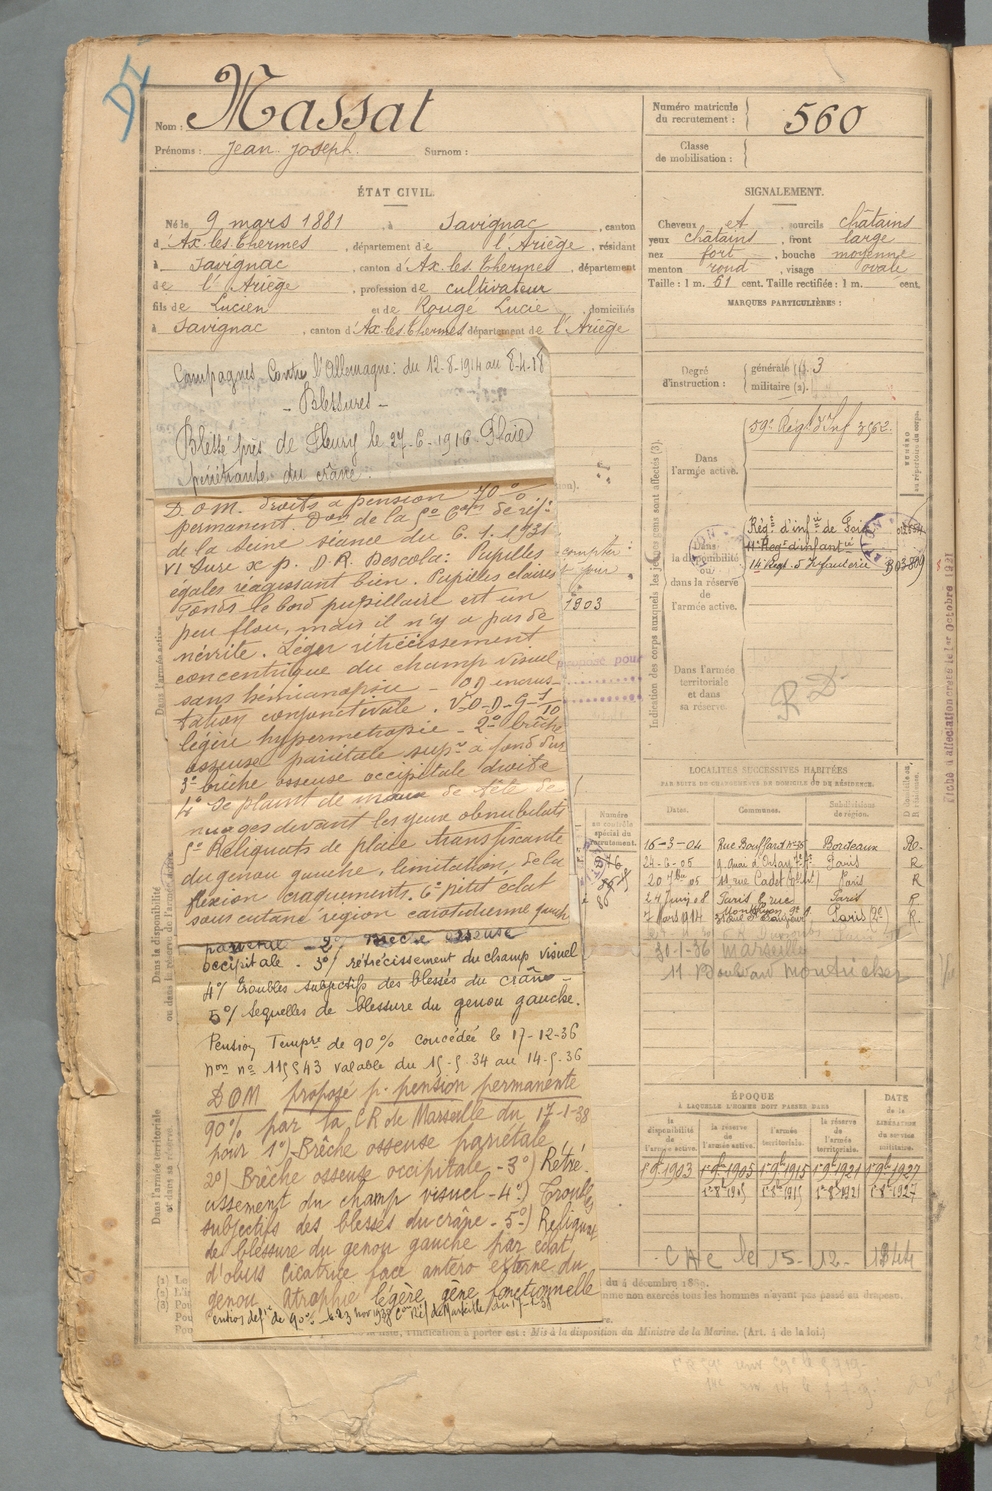 Nom : Massat
Prénoms : Jean Joseph. Surnom :
Numéro matricule du recrutement : 560
Classe de mobilisation :
ÉTAT CIVIL.
Né le 9 mars 1881, à Savignac, canton
d'Ax-les-Thermes, département de l'Ariège, résidant
à Savignac, canton d'Ax-les-Thermes, département
de l'Ariège, profession de cultivateur
fils de Lucien et de Rouge Lucie, domiciliés
à Savignac, canton d'Ax-les-Thermes département de l'Ariège
SIGNALEMENT.
Cheveux et sourcils châtains
yeux châtains, front large
nez fort, bouche moyenne
menton rond, visage ovale
Taille : 1 m. 61 cent. Taille rectifiée : 1 m. cent.
MARQUES PARTICULIÈRES :
Degré d'instruction : générale (1). 3
militaire (2).
Campagnes Contre l'Allemagne : du 12-8-1914 au 8-4-18
- Blessures -
Blessé près de Fleury le 27-6-1916 Plaie
pénétrante du crâne.
D.O.M. droits a pension 70%
permanent. Don de la 5e Con de réf.
de la Seine séance du 6.1.1931
p. D.R. Descola : Pupilles
égales réagissant bien. Pupilles claires
Fonds le bord pupillaire est un
peu flou, mais il n'y a pas de
névrite. Léger rétrécissement
concentrique du champ visuel
sans hémianopsie - OD incrus-
tation conjonctivale. V-O-D-G-1/10
légère hypermétropie - 2° brêche
osseuse pariétale supre a fond dur
3° brêche osseuse occipitale droite
4° Se plaint de maux de tête de
nuages devant les yeux obnubilats
5° Reliquats de plaie transfixante
du genou gauche, limitation de la
flexion craquements. 6° petit éclat
sous cutané région carotidienne gauch
pariétale - 2°/ Brêche osseuse
occipitale - 3°/ rétrécissement du champ visuel
4°/ troubles subjectifs des blessés du crâne -
5°/ séquelles de blessure du genou gauche.
Pension Tempre de 90% concédée le 17-12-36
valable du 15-5-34 au 14-5-36
DOM proposé p. pension permanente
90% par la CR de Marseille du 17-1-38
pour 1°) Brêche osseuse pariétale
2°) Brêche osseuse occipitale - 3°) Rétré-
cissement du champ visuel - 4°) Troubles
subjectifs des blessés du crâne - 5°) Reliquat
de blessure du genou gauche par éclat
d'obus cicatrice face antero externe du
genou atrophie légère, gêne fonctionnelle
Indication des corps auxquels les jeunes gens sont affectés (3).
Dans l'armée active. 59e Régt d'Inf
NUMÉRO
Dans la disponibilité ou dans la réserve de l'armée active.
Régt d'infie de Foix
14e Régt d'Infanterie
Dans l'armée territoriale et dans sa réserve.
R D
Fiche d'affectation créée le 1er Octobre 1921
compter :
1903
proposé pour
Numéro au contrôle spécial du recrutement.
LOCALITÉS SUCCESSIVES HABITÉES
PAR SUITE DE CHANGEMENTS DE DOMICILE OU DE RÉSIDENCE.
Dates. Communes. Subdivisions de région. Domicile ou Résidence.
16-3-04 Rue Bouffard Bordeaux
24-6-05 Quai d'Orsay Paris R
20 7bre 05 11 rue Cadet Paris R
24 Juin 08 Paris Paris R
7 Mars 1914 Paris (9e) R.
30-1-36 Marseille
11 Boulevard Montricher
ÉPOQUE
À LAQUELLE L'HOMME DOIT PASSER DANS
DATE de la LIBÉRATION du service militaire.
la disponibilité de l'armée active. la réserve de l'armée active. l'armée territoriale. la réserve de l'armée territoriale.
1903 1905 1915 1921 1927
1905 1915 1921 1927
Dans l'armée active
Dans la disponibilité ou dans la réserve de l'armée active
Dans l'armée territoriale et dans sa réserve.
du 4 décembre 188
mme non exercés tous les hommes n'ayant pas passé au drapeau.
l'indication à porter est : Mis à la disposition du Ministre de la Marine. (Art. 4 de la loi.)